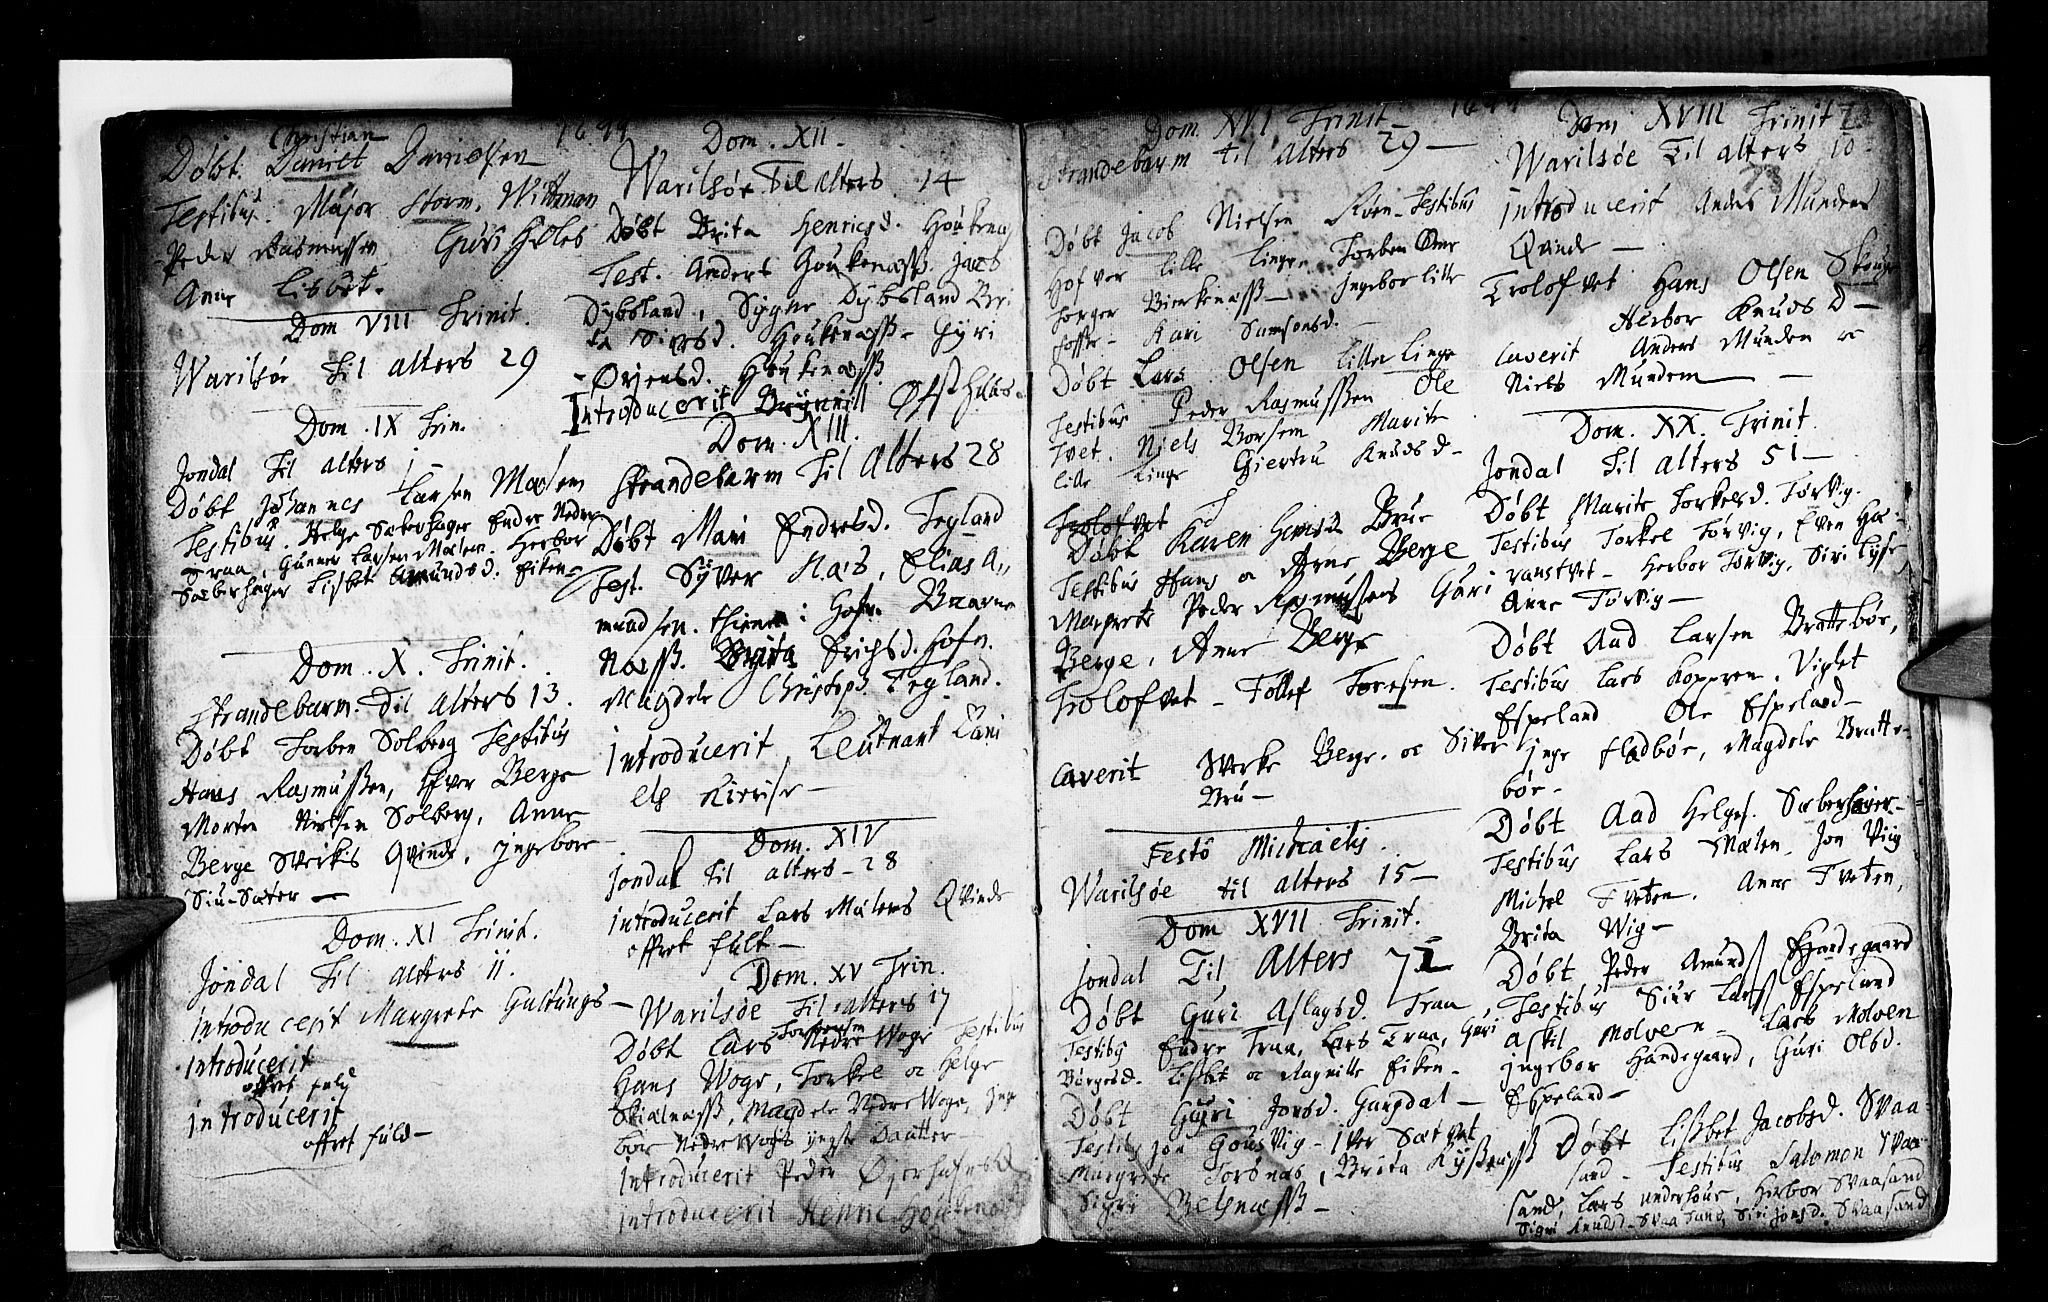 Christian
Døbt. Daniel Danielsen
Testibus. Major Storm, Wittman
Peder Rasmussen Guri Holes
Anne Lisbet.
Dom VIII Trinit.
Warilsøe til alters 29
Dom. IX Trin.
Jondal til alters j
Døbt Johannes Larsen Mælen
Testibus. Helge Sæberhager Endre Nedre
Traa, Gunner Larsen Mælen. Herbor
Sæberhager Lisbet Amundsd. Eiken
Dom. X. Trinit.
Strandebarm. til alters 13.
Døbt Torben Solberg Testibus
Hans Rasmussen, Ifver Berge
Morten Nielsen Solberg, Anne
Berge Sverkis Qvinde, Jngebor
Siu-Sæter
Dom. XI Trinit.
Jondal til alters 11.
introducerit Margrete Galtungs
introducerit
offret fuld
introducerit
offret fuld
1699
Dom. XII.
Warilsøe til alters 14
Døbt Brita Henricsd. Houkenæs
Test. Anders Goukenæss. Jacob
Dybsland, Signe Dybsland Bri
ta Siversd. Houkenæss. Gyri
Ørjensd. Houkenæss
Introducerit Brynnill Øfsthuus
Dom. XIII.
Strandebarm til alters 28
Døbt Mari Endresd. Tegland
Test. Syver N.æs, Elias A,,
mundsen. thiene i Hofn. Baarne
Næss. Brita Erichsd. Hofn.
Magdele Christophd. Tegland.
introducerit Leutnant Dani
els Kierise
Dom. XIV
Jondal til alters 28
introducerit Lars Mælens Qvinde
offret fult
Dom. XV Trin.
Warilsøe til alters 17
Døbt Lars Torkelsen Nedre Woge Testibus
Hans Woge, Torkel oc Helge
Skialnæss, Magdele Nedre Woge, Jnge
bor Nedre Wogis yngste Daatter
introducerit Peder Øyerhafns Q
introducerit Henric Houkenæs
Dom. XVI Trinit.
Strandebarm til alters 29
Døbt Jacob Nielsen Røen Testibus
Hofver Lille Linge Torben Øure
Torger Bierkenæss Jngebor lille
Tofte Kari Samsonsd.
Døbt Lars Olsen Lille Linge
Testibus Peder Rasmussen Ole
Tvet. Niels Borsem Marite
lille Linge Giertru Knudsd
Trolofvet
Døbt Karen Brue
Testibus Hans oc Arne Berge
Margrete Peder Rasmussens Guri
Berge, Anne Berge
Trolofvet Tollef Toresen.
Caverit Sverke Berge. oc Siver
Bru
Festo Michaelis.
Warilsøe til alters 15
Dom XVII Trinit.
Jondal Til Alters 71
Døbt Guri Aslagsd. Traa
Testibus Endre Traa, Lars Traa, Guri
Børgesd. Lisbet oc Ragnille Eiken
Døbt Guri Jonsd. Gangdal
Testibus Jon Gousvig Iver Sætvet
Margrete Torsnæs, Brita Kyssenæss
Sigri Belsnæss
1699
Dom XVIII Trinit
73
Warilsøe Til alters 10
introducerit Anders Mundens
Qvinde
Trolofvet Hans Olsen Skouge
Herbor Knudsd
Caverit Anders Munden oc
Niels Mundem
Dom. XX. Trinit.
Jondal til alters 51
Døbt Marite Torkelsd. Torvig.
Testibus Torkel Torvig, Even Hæ
ranstvet Herbor Torvig, Siri Lysse
Anne Torvig
Døbt Aad Larsen Brattebør,
Testibus Lars Kopren. Viglet
Espeland Ole Espeland
Jnge Fladbør, Magdele Bratte
bør
Døbt Aad Helges. Sæberhager
Testibus Lars Mælen Jon Viig
Michel Tveten. Anne Tveten,
Brita Wig
Døbt Peder Amunds Handegaard
Testibus Siur Lars Espeland
askil Molvern Lars Molven
Jngebor Handegaard, Guri Olsd.
Espeland
Døbt Lisbet Jacobsd. Svaa
sand Testibus Salomon Svaa
sand, Lars underhoue, Herbor Svaasand
Sigri Knudsd Svaasand, Siri Jonsd. Svaasand